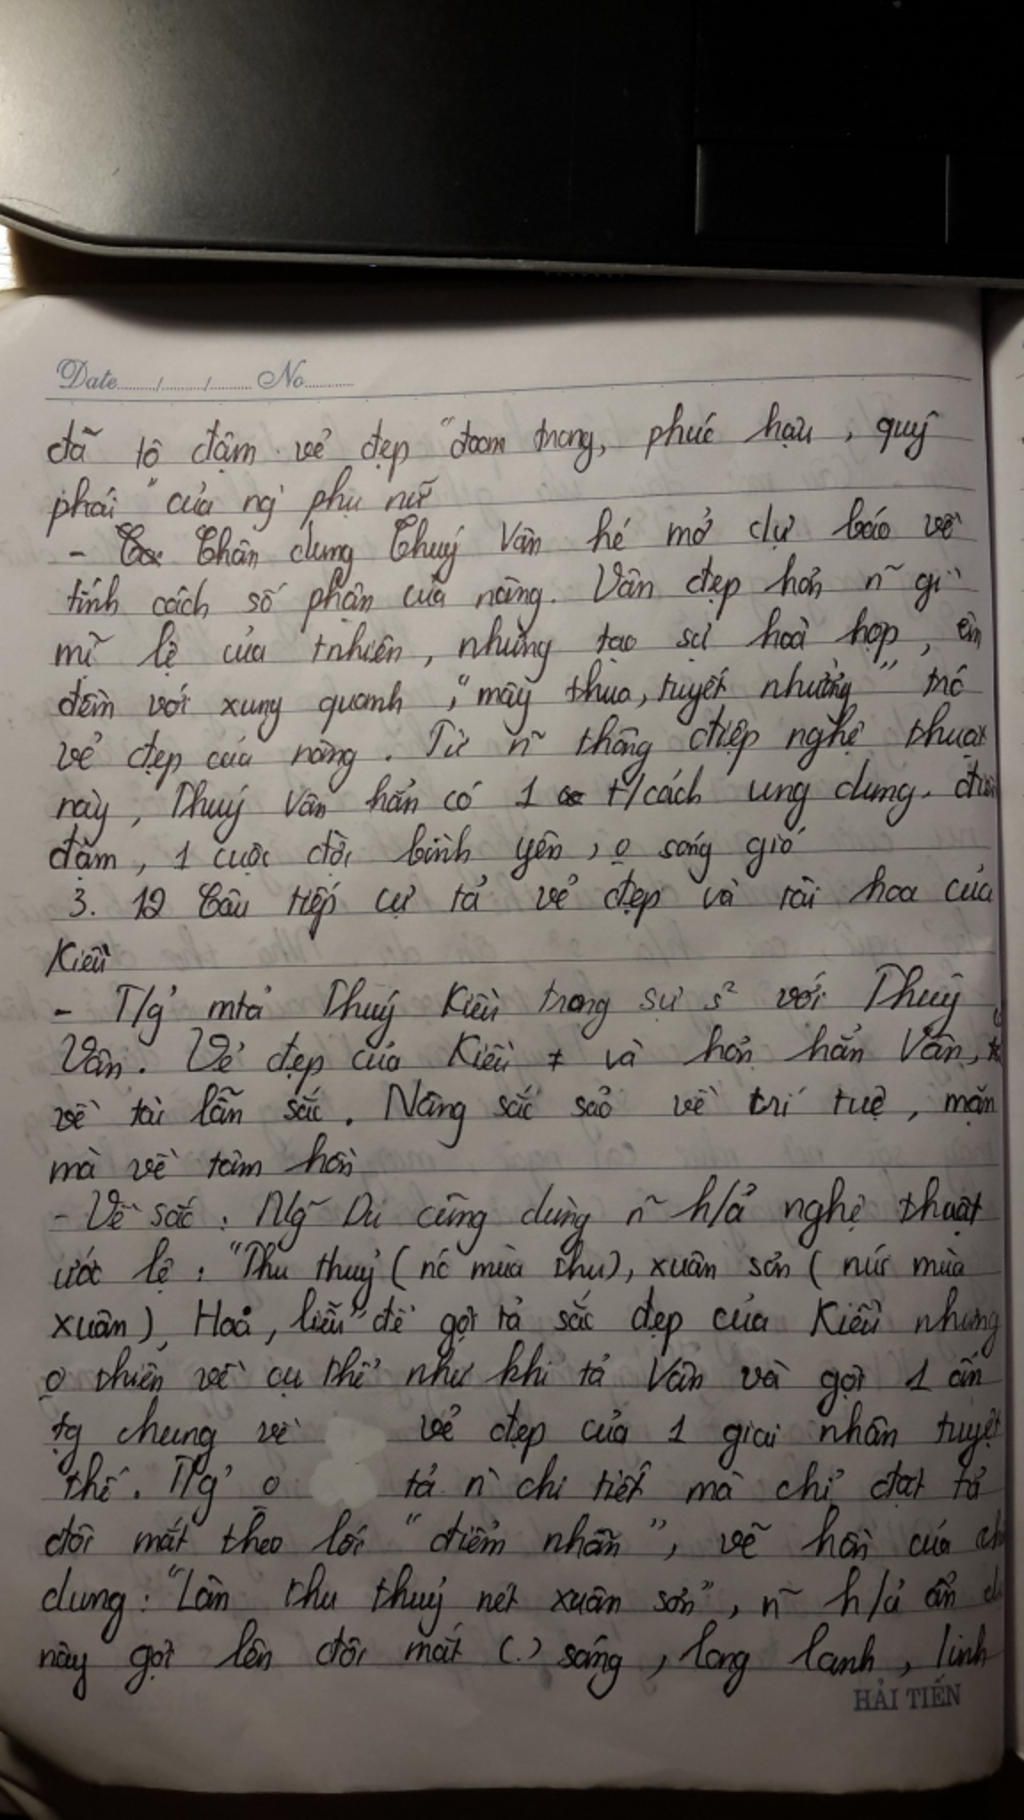 Date....../....../...... No..........
đã tô đậm vẻ đẹp "đoan trang, phúc hậu, quý
phái" của ng` phụ nữ
- Chân dung Thuý Vân hé mở dự báo về
tính cách số phận của nàng. Vân đẹp hơn n~ gì
mĩ lệ của tnhiên, nhưng tạo sự hoà hợp, êm
đềm với xung quanh, "mây thua, tuyết nhường" trc
vẻ đẹp của nàng. Từ n~ thông điệp nghệ thuật
này, Thuý Vân hẳn có 1 t/cách ung dung, điềm
đạm, 1 cuộc đời bình yên, o sóng gió
3. 12 Câu tiếp cự tả vẻ đẹp và tài hoa của
Kiều
- T/g' mtả Thuý Kiều trong sự s² với Thuý
Vân. Vẻ đẹp của Kiều ≠ và hơn hẳn Vân,
về tài lẫn sắc. Nàng sắc sảo về trí tuệ, mặn
mà về tâm hồn
- Về sắc: Ng~ Du cũng dùng n~ h/ả nghệ thuật
ước lệ: "Thu thuỷ (nc mùa thu), xuân sơn (núi mùa
xuân), Hoa, liễu" để gợi tả sắc đẹp của Kiều nhưng
o thiên về cụ thể như khi tả Vân và gợi 1 ấn
tg chung về vẻ đẹp của 1 giai nhân tuyệt
thế. T/g' o tả n` chi tiết mà chỉ đạt tả
đôi mắt theo lối "điểm nhãn", vẽ hồn của
dung: "Làn thu thuỷ nét xuân sơn", n~ h/ả ẩn
này gợi lên đôi mắt (.) sáng, long lanh, linh
HẢI TIẾN